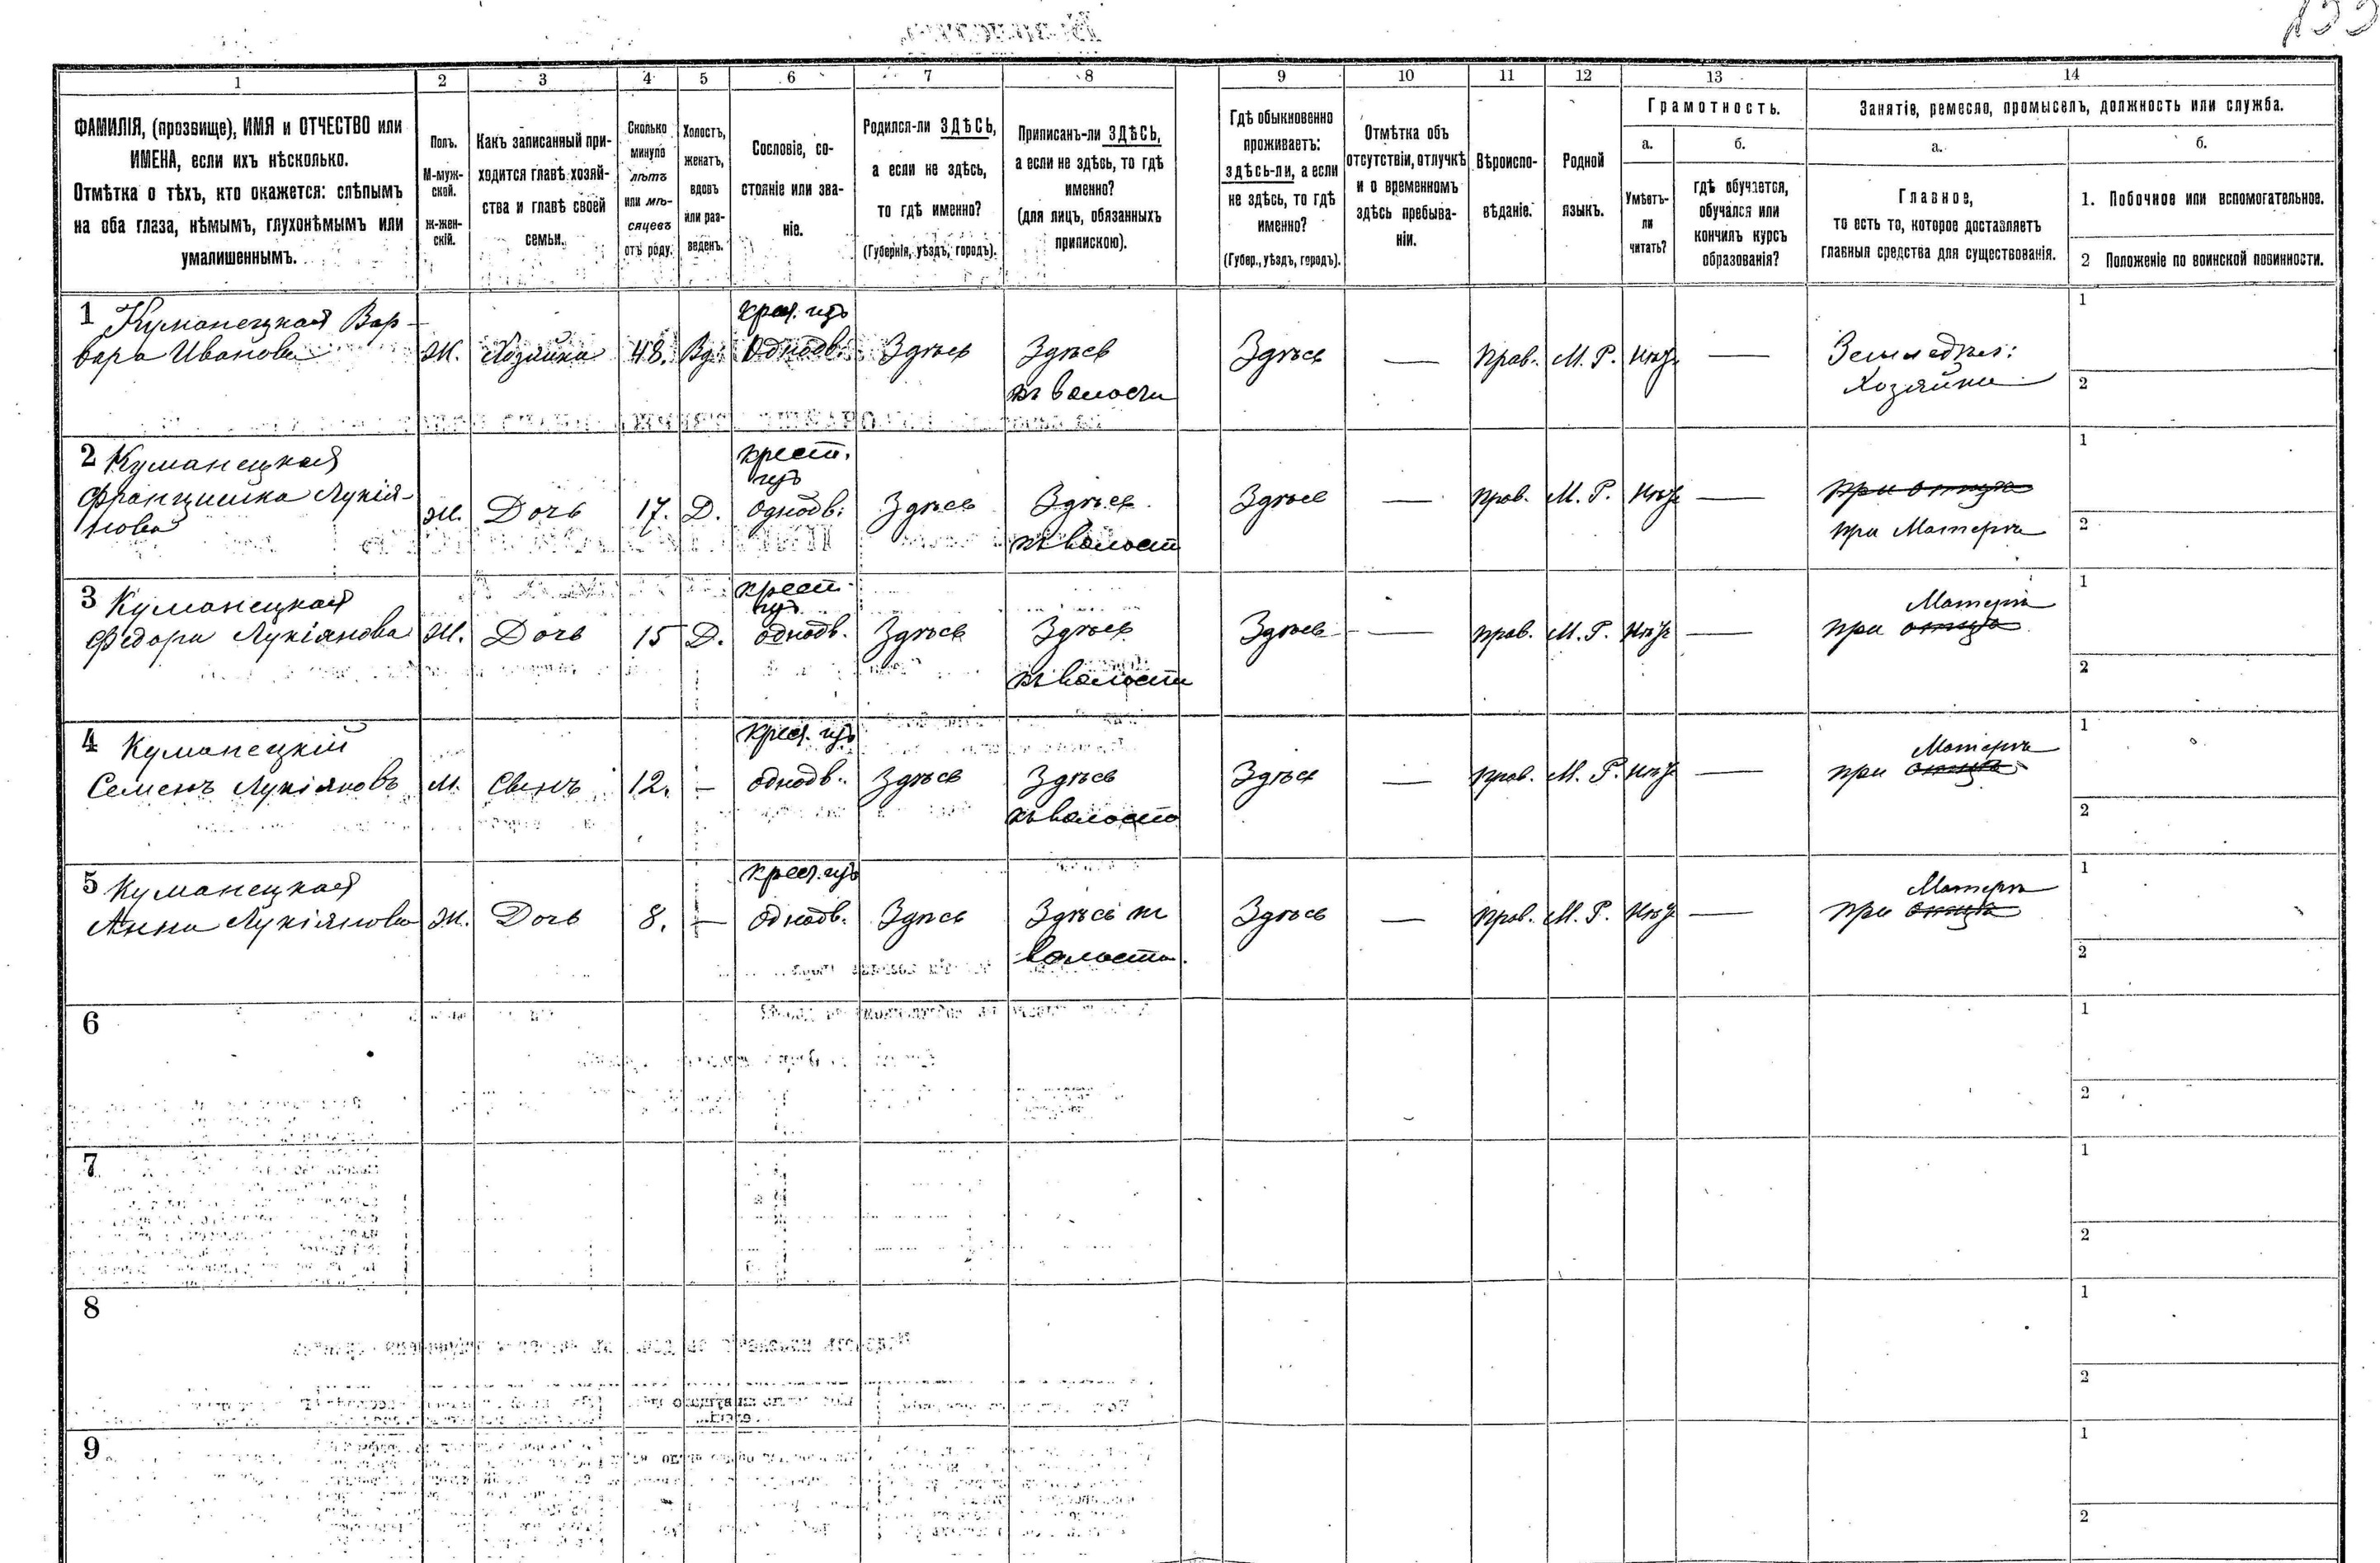 1 2 3 4 5 6 7 8 9 10 11 12 13 14
ФАМИЛІЯ, (прозвище), ИМЯ и ОТЧЕСТВО или
ИМЕНА, если ихъ нѣсколько.
Отмѣтка о тѣхъ, кто окажется: слѣпымъ
на оба глаза, нѣмымъ, глухонѣмымъ или
умалишеннымъ.
Полъ.
М-муж-
ской.
ж-жен-
скій.
Какъ записанный при-
ходится главѣ хозяй-
ства и главѣ своей
семьи.
Сколько
минуло
лѣтъ
или мѣ-
сяцевъ
отъ роду.
Холостъ,
женатъ,
вдовъ
или раз-
веденъ.
Сословіе, со-
стояніе или зва-
ніе.
Родился-ли ЗДѢСЬ,
а если не здѣсь,
то гдѣ именно?
(Губернія, уѣздъ, городъ).
Приписанъ-ли ЗДѢСЬ,
а если не здѣсь, то гдѣ
именно?
(для лицъ, обязанныхъ
припискою).
Гдѣ обыкновенно
проживаетъ:
здѣсь-ли, а если
не здѣсь, то гдѣ
именно?
(Губер., уѣздъ, городъ).
Отмѣтка объ
отсутствіи, отлучкѣ
и о временномъ
здѣсь пребыва-
ніи.
Вѣроиспо-
вѣданіе.
Родной
языкъ.
Грамотность.
а.
Умѣетъ-
ли
читать?
б.
гдѣ обучается,
обучался или
кончилъ курсъ
образованія?
Занятіе, ремесло, промыселъ, должность или служба.
а.
Главное,
то есть то, которое доставляетъ
главныя средства для существованія.
б.
1. Побочное или вспомогательное.
2 Положеніе по воинской повинности.
1 Куманецкая Вар-
вара Иванова
Ж.
Хозяйка
48.
Вд.
крест. изъ
Однодв.
Здѣсь
Здѣсь
въ волости
Здѣсь
—
Прав.
М. Р.
Нѣтъ
—
Земледѣл:
Хозяйка
1
2
2 Куманецкая
Францишка Лукія-
нова
Ж.
Дочь
17.
Д.
крест.
изъ
однодв.
Здѣсь
Здѣсь
въ волости
Здѣсь
—
Прав.
М. Р.
Нѣтъ
—
при отцѣ
при Матери
1
2
3 Куманецкая
Федора Лукіянова
Ж.
Дочь
15
Д.
крест
изъ
однодв.
Здѣсь
Здѣсь
въ волости
Здѣсь
—
прав.
М. Р.
Нѣтъ
—
Матери
при отцѣ
1
2
4 Куманецкій
Семенъ Лукіяновъ
М.
Сынъ
12.
—
Крест. изъ
однодв.
Здѣсь
Здѣсь
въ волости
Здѣсь
—
прав.
М. Р.
Нѣтъ
—
Матери
при отцѣ
1
2
5 Куманецкая
Анна Лукіянова
Ж.
Дочь
8.
—
Крест. изъ
Однодв.
Здѣсь
Здѣсь въ
волости.
Здѣсь
—
Прав.
М. Р.
Нѣтъ
—
Матери
при отцѣ
1
2
6
1
2
7
1
2
8
1
2
9
1
2